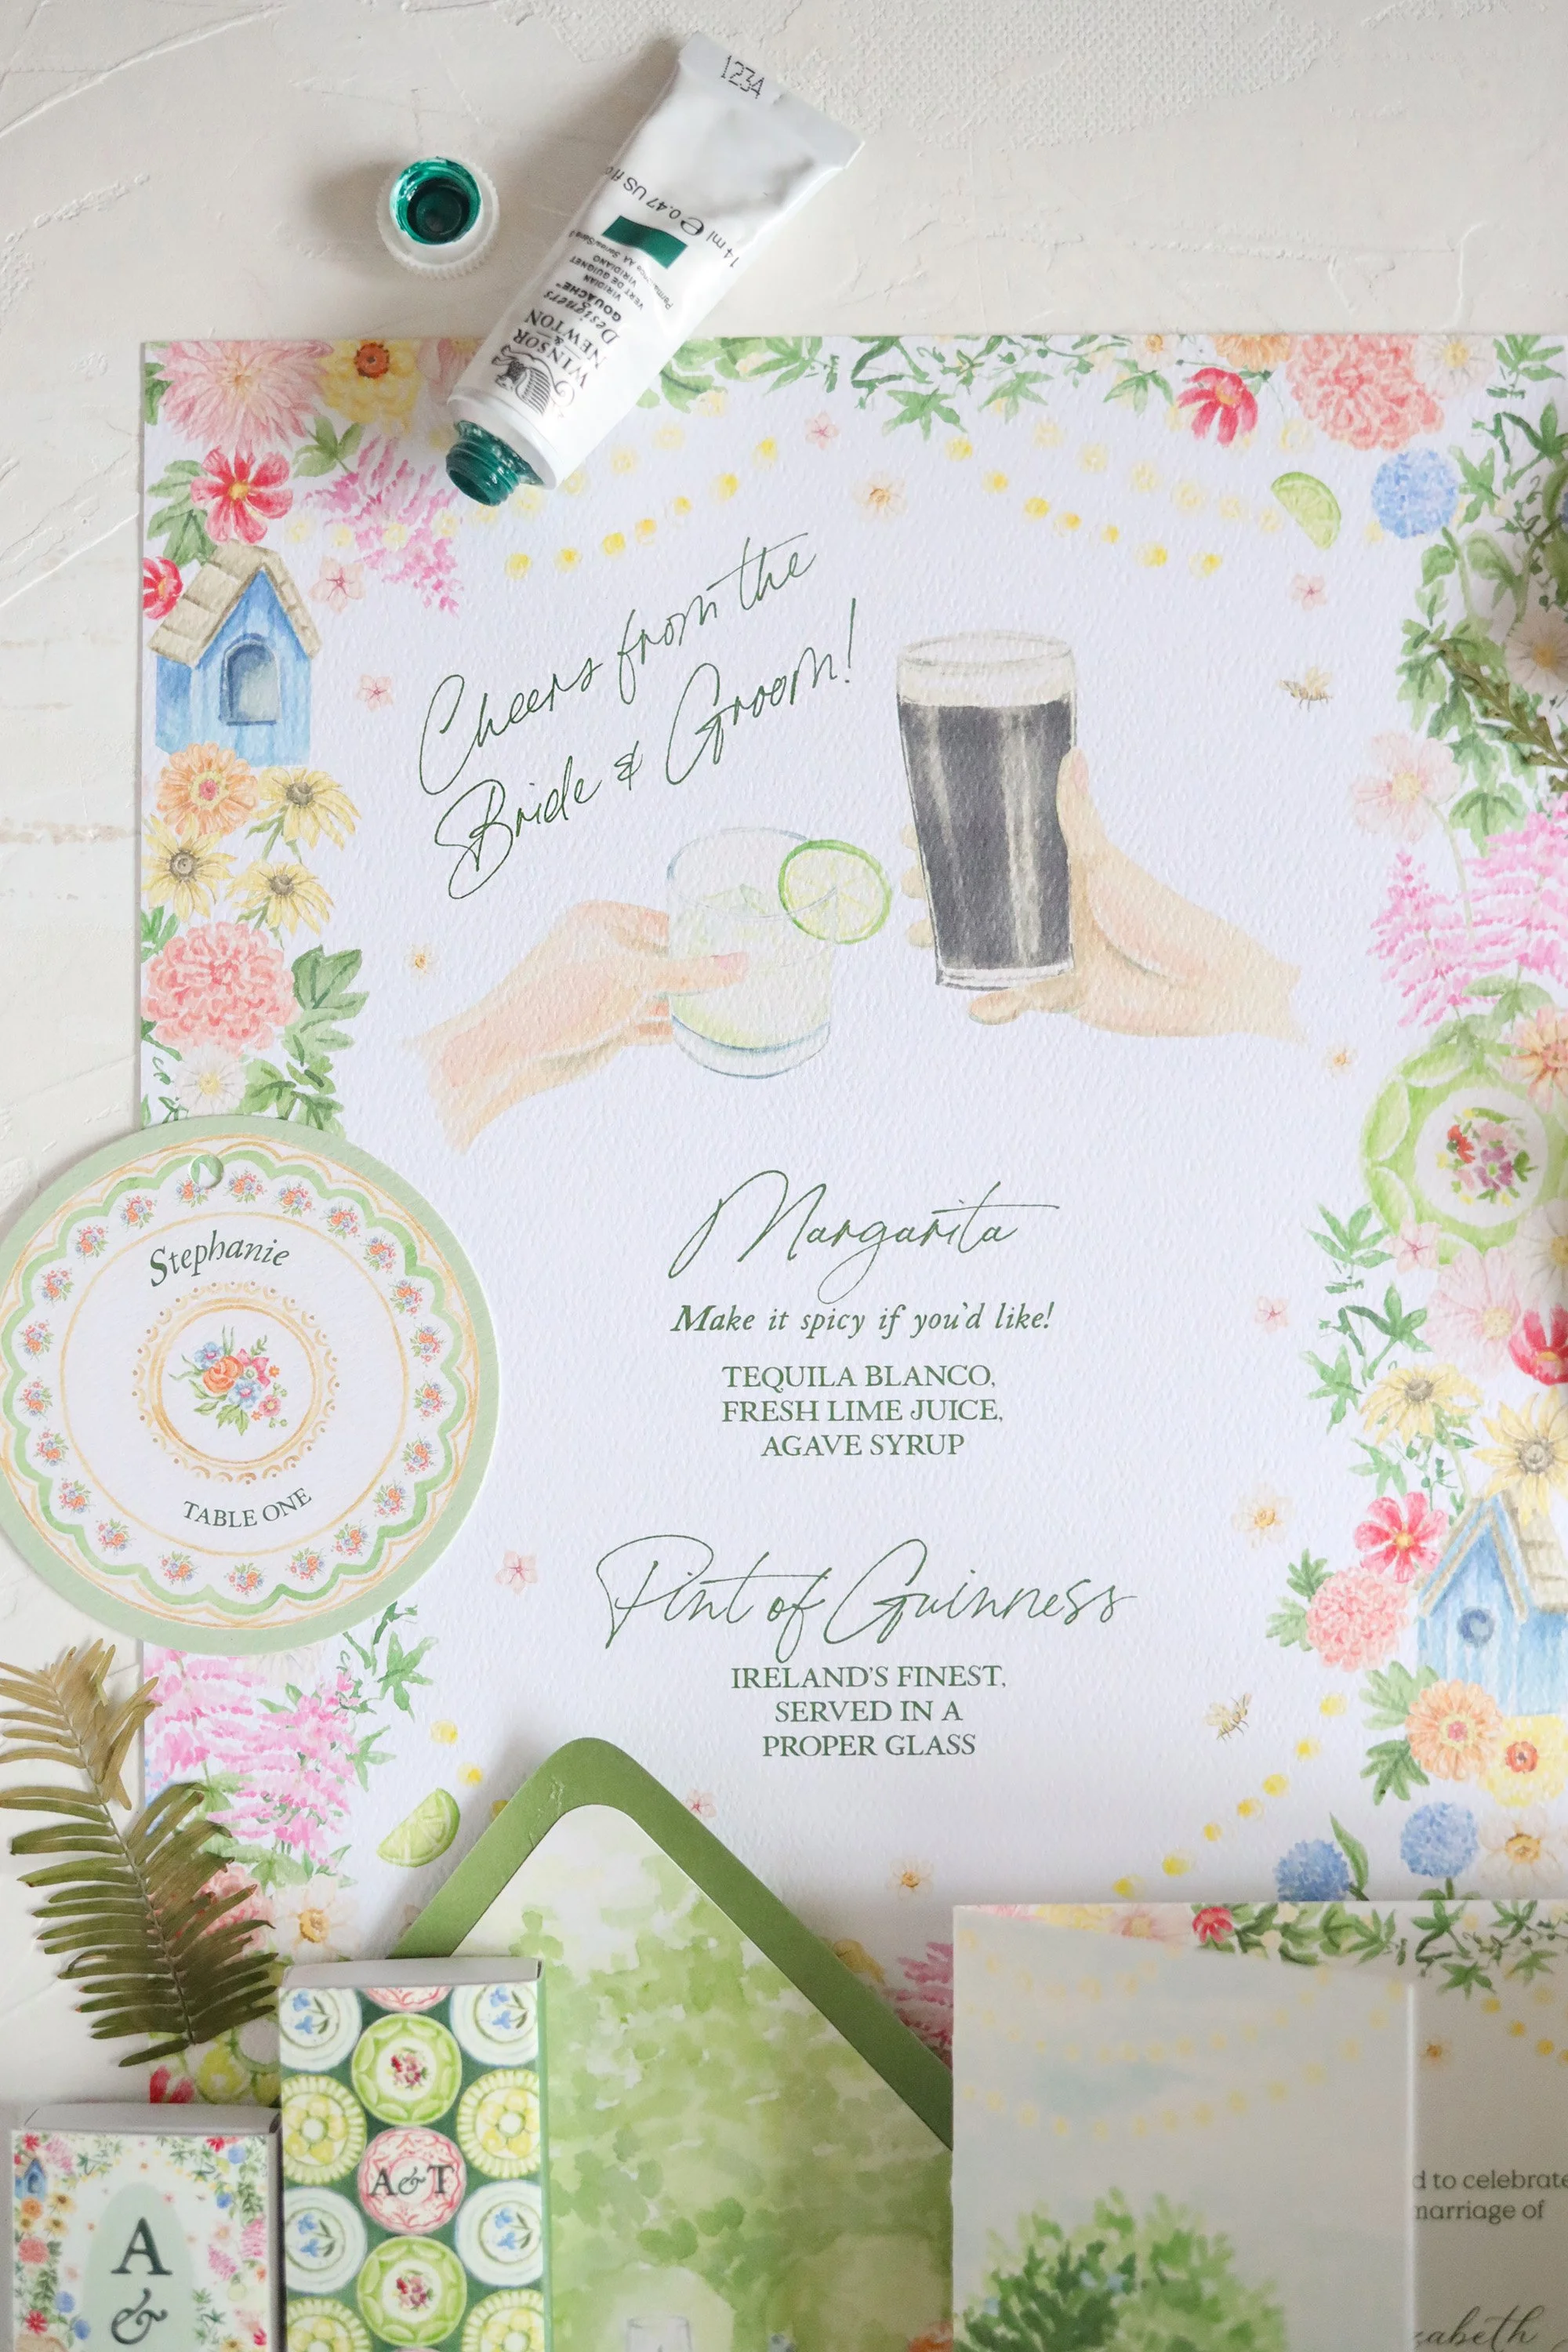 1234
14 ml e 0.47 US fl o
VIRIDIANO
VERT DE GUIGNET
VIRIDIAN
Designers
GOUACHE™
WINSOR
&
NEWTON
Cheers from the
Bride & Groom!
Margarita
Make it spicy if you'd like!
TEQUILA BLANCO,
FRESH LIME JUICE,
AGAVE SYRUP
Stephanie
TABLE ONE
Pint of Guinness
IRELAND'S FINEST,
SERVED IN A
PROPER GLASS
A&T
A
&
d to celebrate
marriage of
zabeth